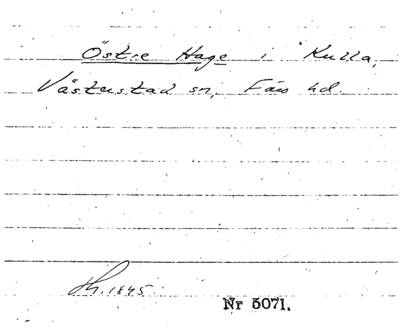 Östre Hage i Kulla,
Västerstad sn, Färs hd.
1845
Nr 5071.